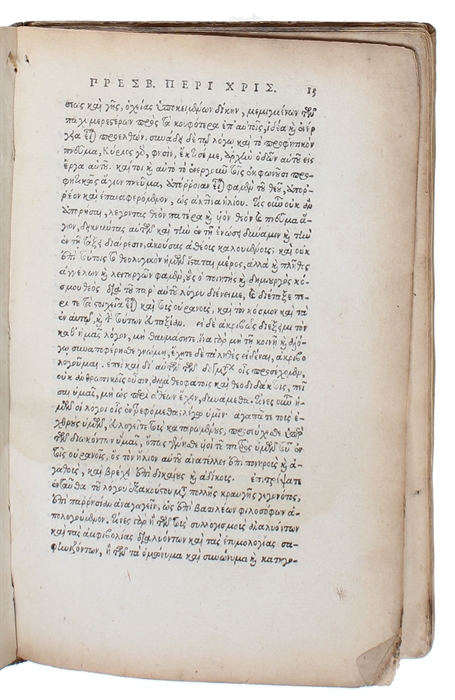 ΠΡΕΣΒ. ΠΕΡΙ ΧΡΙΣ. 15
σεως καὶ γῆς, ὀχείας ὑποκειμένων δίκην, μεμιγμένων τῶν
παχυμερεστέρων πρὸς τὰ κουφότερα ἐπ' αὐτοῖς, ἰδέα καὶ ἐνέρ-
γεια εἶναι προελθών. συνάδει δὲ τῷ λόγῳ καὶ τὸ προφητικὸν
πνεῦμα, Κύριος γὰρ, φησὶν, ἔκτισέ με, ἀρχὴν ὁδῶν αὐτοῦ εἰς
ἔργα αὐτοῦ. καίτοι καὶ αὐτὸ τὸ ἐνεργοῦν τοῖς ἐκφωνοῦσι προ-
φητικῶς ἅγιον πνεῦμα, ἀπόρροιαν εἶναι φαμὲν τοῦ θεοῦ, ἀπορ-
ρέον καὶ ἐπαναφερόμενον, ὡς ἀκτῖνα ἡλίου. τίς οὖν οὐκ ἂν
ἀπορήσαι, λέγοντας θεὸν πατέρα καὶ υἱὸν θεὸν καὶ πνεῦμα ἅ-
γιον, δεικνύντας αὐτῶν καὶ τὴν ἐν τῇ ἑνώσει δύναμιν καὶ τὴν
ἐν τῇ τάξει διαίρεσιν, ἀκούσας ἀθέους καλουμένους; καὶ οὐκ
ἐπὶ τούτοις τὸ θεολογικὸν ἡμῶν ἵσταται μέρος, ἀλλὰ καὶ πλῆθος
ἀγγέλων καὶ λειτουργῶν φαμὲν, οὓς ὁ ποιητὴς καὶ δημιουργὸς κό-
σμου θεὸς διὰ τοῦ παρ' αὐτοῦ λόγου διένειμε, καὶ διέταξε πε-
ρί τε τὰ στοιχεῖα εἶναι καὶ τοὺς οὐρανοὺς, καὶ τὸν κόσμον καὶ τὰ
ἐν αὐτῷ, καὶ τὴν τούτων εὐταξίαν. εἰ δὲ ἀκριβῶς διέξειμι τὸν
καθ' ἡμᾶς λόγον, μὴ θαυμάσητε, ἵνα γὰρ μὴ τῇ κοινῇ καὶ ἀλόγῳ
συναποφέρησθε γνώμῃ, ἔχητε δὲ τἀληθὲς εἰδέναι, ἀκριβο-
λογοῦμαι. ἐπεὶ καὶ δι' αὐτῶν τῶν δογμάτων οἷς προσέχομεν,
οὐκ ἀνθρωπικοῖς οὖσιν, ἀλλὰ θεοφάτοις καὶ θεοδιδάκτοις, πεῖ-
σαι ὑμᾶς, μὴ ὡς περὶ ἀθέων ἔχειν, δυνάμεθα. τίνες οὖν ἡ-
μῶν οἱ λόγοι οἷς ἐντρεφόμεθα; λέγω ὑμῖν ἀγαπᾶτε τοὺς ἐ-
χθροὺς ὑμῶν, εὐλογεῖτε τοὺς καταρωμένους, προσεύχεσθε ὑπὲρ
τῶν διωκόντων ὑμᾶς, ὅπως γένησθε υἱοὶ τοῦ πατρὸς ὑμῶν τοῦ ἐν
τοῖς οὐρανοῖς, ὃς τὸν ἥλιον αὐτοῦ ἀνατέλλει ἐπὶ πονηροὺς καὶ ἀ-
γαθοὺς, καὶ βρέχει ἐπὶ δικαίους καὶ ἀδίκους. ἐπιτρέψατε
ἐνταῦθα τοῦ λόγου ἐξακούστου μετὰ πολλῆς κραυγῆς γεγονότος,
ἐπὶ παρρησίαν ἀναγαγεῖν, ὡς ἐπὶ βασιλέων φιλοσόφων ἀ-
πολογούμενον. τίνες γὰρ ἢ τῶν τοὺς συλλογισμοὺς ἀναλυόντων
καὶ τὰς ἀμφιβολίας διαλυόντων καὶ τὰς ἐτυμολογίας σα-
φηνιζόντων, ἢ τῶν τὰ ὁμώνυμα καὶ συνώνυμα καὶ κατηγο-